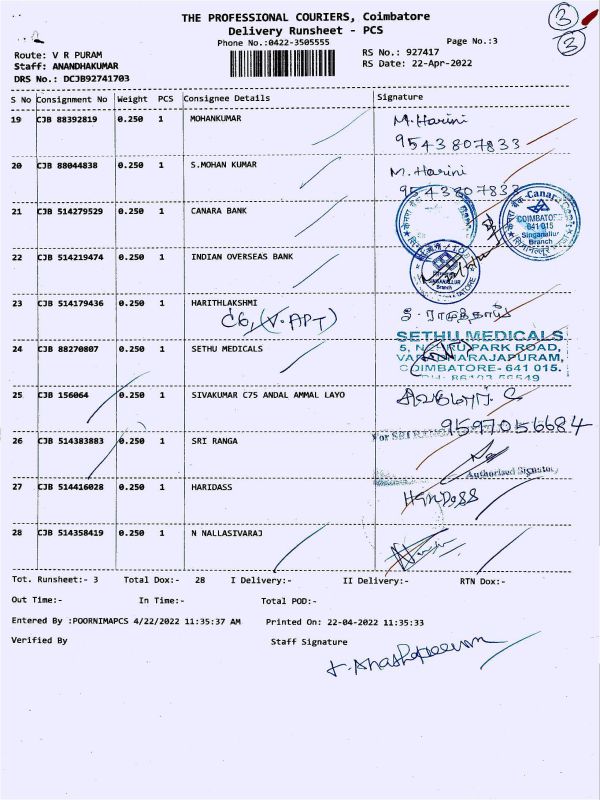 THE PROFESSIONAL COURIERS, Coimbatore
Delivery Runsheet - PCS
Phone No.:0422-3505555
Page No.:3
3
3
Route: V R PURAM
Staff: ANANDHAKUMAR
DRS No.: DCJB92741703
RS No.: 927417
RS Date: 22-Apr-2022
S No Consignment No Weight PCS Consignee Details Signature
19 CJB 88392819 0.250 1 MOHANKUMAR M. Harini
9543807833
20 CJB 88044838 0.250 1 S.MOHAN KUMAR M. Harini
9543807833
21 CJB 514279529 0.250 1 CANARA BANK
Canara
COIMBATORE
641 015
Singanallur
Branch
22 CJB 514219474 0.250 1 INDIAN OVERSEAS BANK
SINGANALLUR
Branch
23 CJB 514179436 0.250 1 HARITHLAKSHMI
C6, (V. APT)
24 CJB 88270807 0.250 1 SETHU MEDICALS
SETHU MEDICALS
PARK ROAD,
VARADHARAJAPURAM,
COIMBATORE- 641 015.
25 CJB 156064 0.250 1 SIVAKUMAR C75 ANDAL AMMAL LAYO
9597056684
26 CJB 514383883 0.250 1 SRI RANGA
For SRI RANGA
Authorised Signatory
27 CJB 514416028 0.250 1 HARIDASS
28 CJB 514358419 0.250 1 N NALLASIVARAJ
Tot. Runsheet:- 3 Total Dox:- 28 I Delivery:- II Delivery:- RTN Dox:-
Out Time:- In Time:- Total POD:-
Entered By :POORNIMAPCS 4/22/2022 11:35:37 AM Printed On: 22-04-2022 11:35:33
Verified By Staff Signature